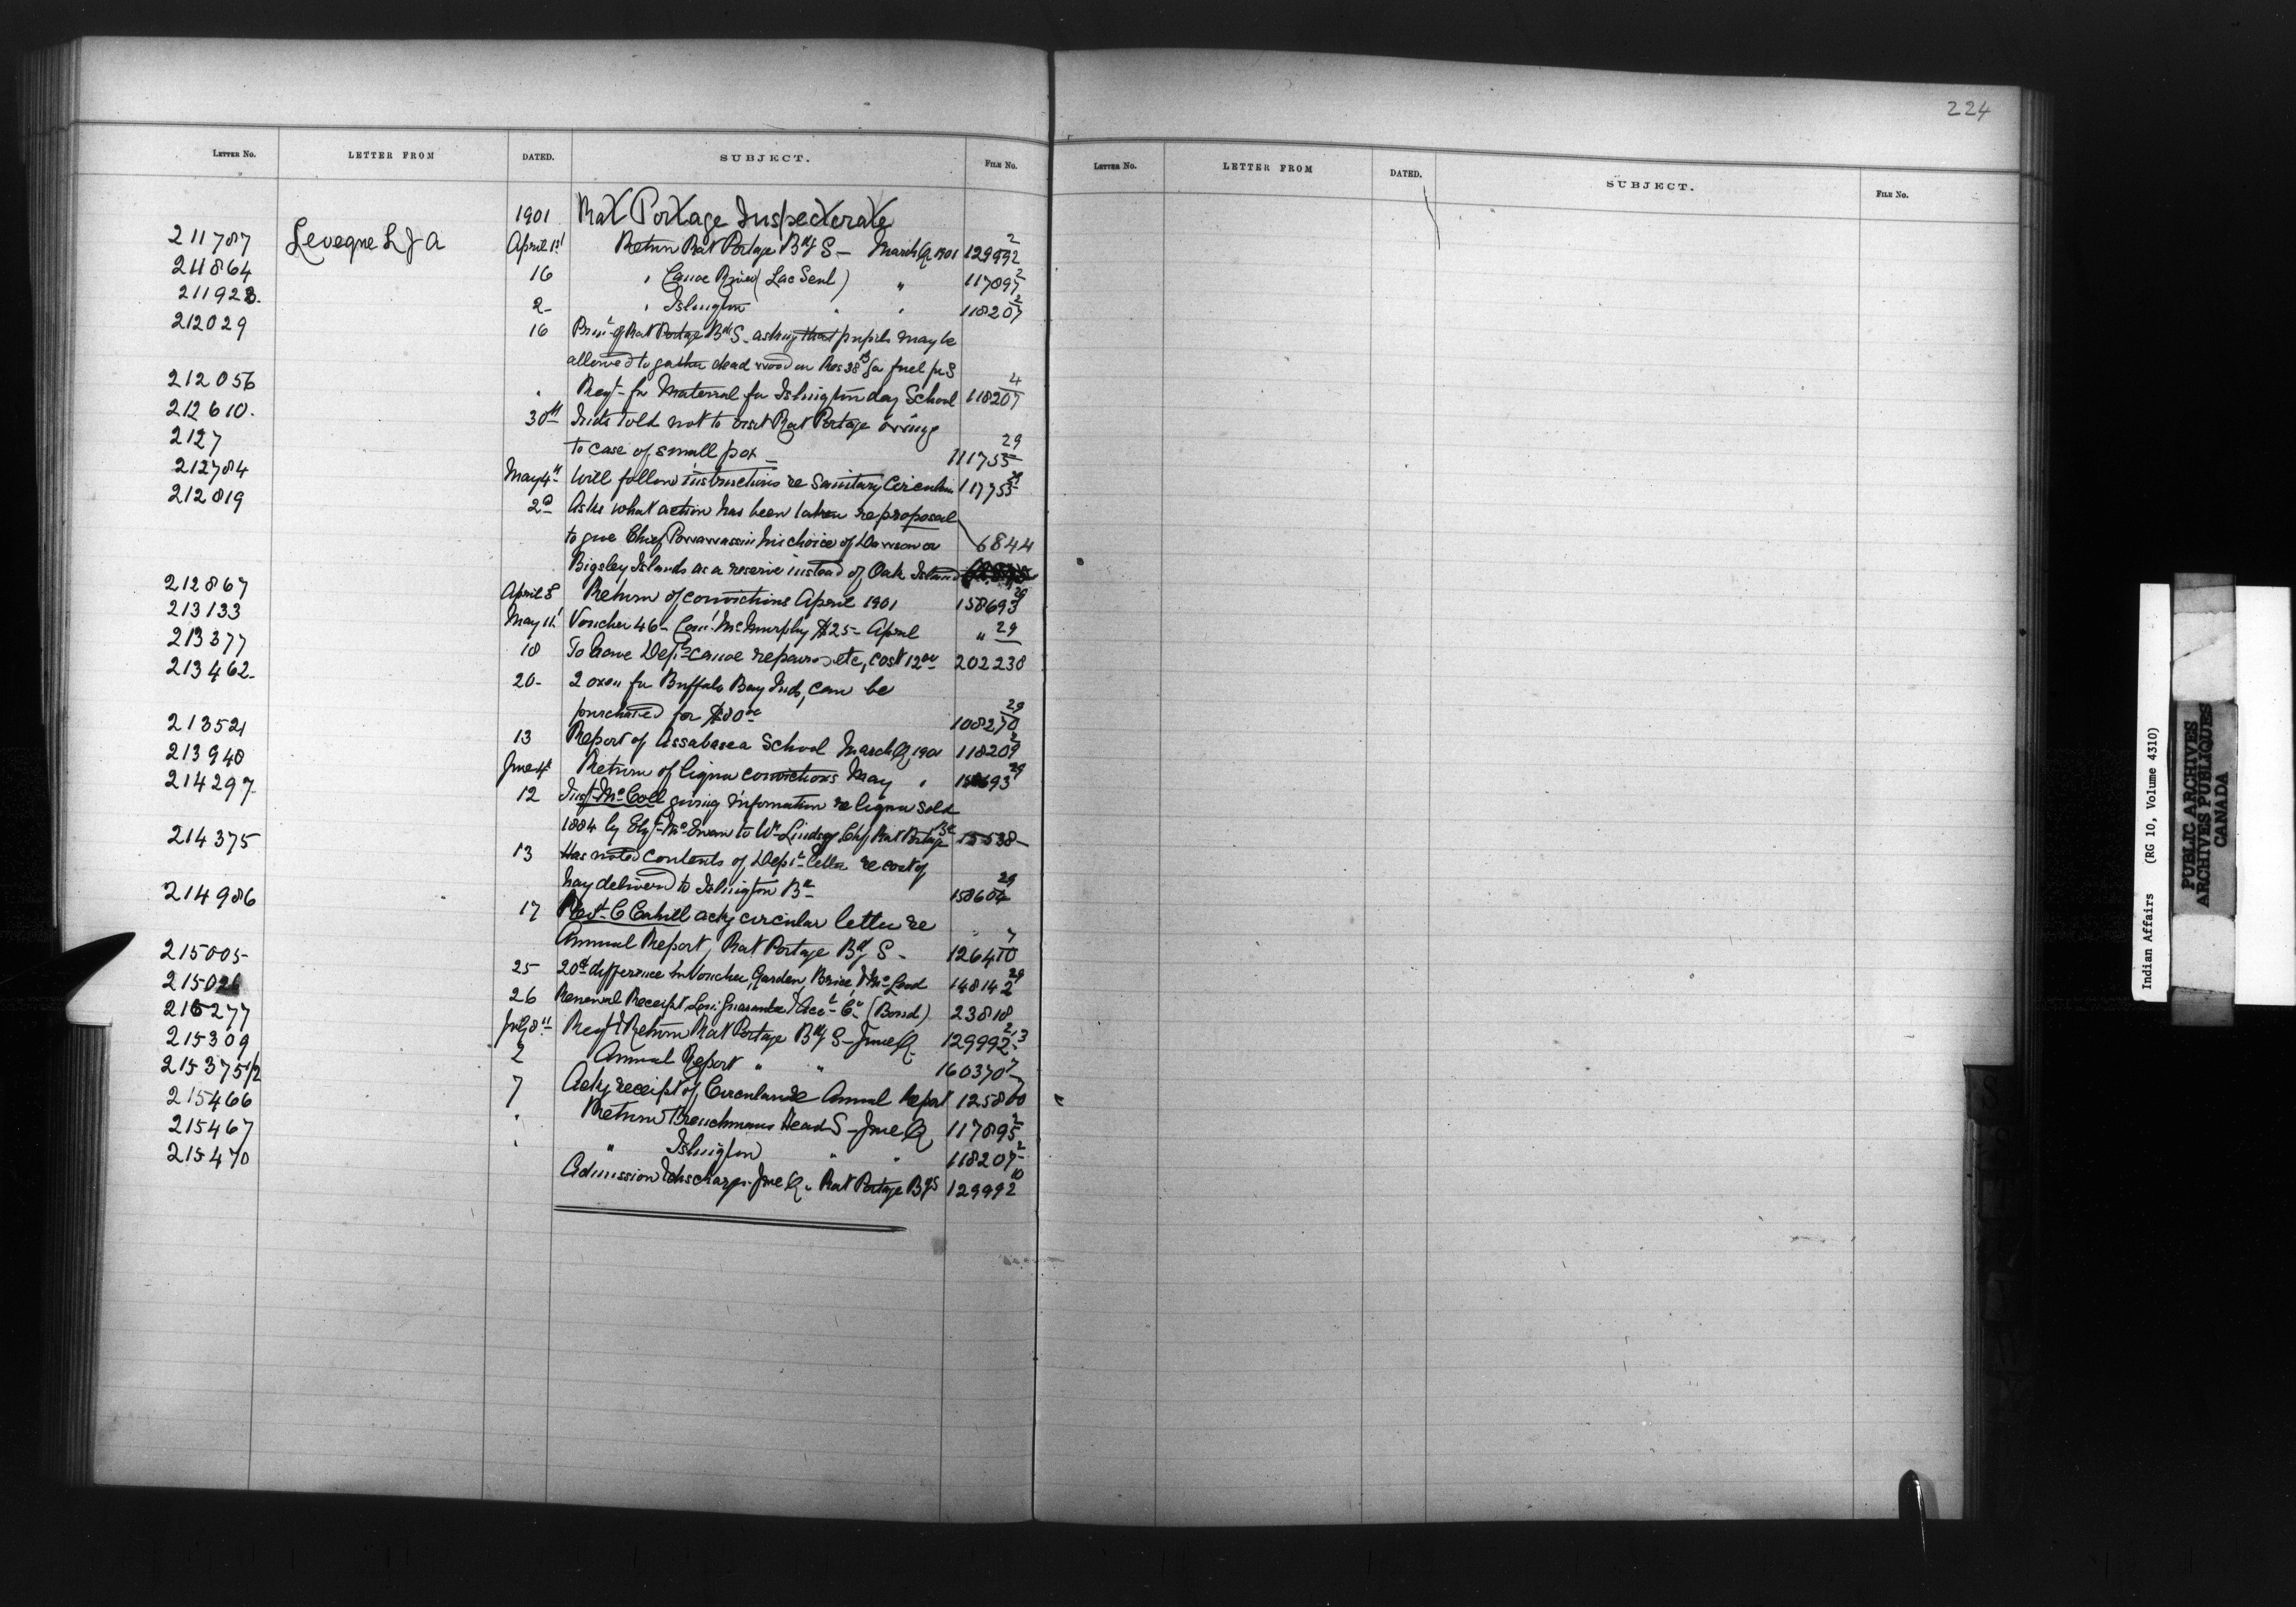 224
LETTER NO. LETTER FROM DATED. SUBJECT. FILE NO. LETTER NO. LETTER FROM DATED. SUBJECT. FILE NO.
1901 Rat Portage Inspectorate
211787 Leveque L J A April 1st Return Rat Portage Bdg S - March Q 1901 129992 2
211864 16 " Canoe River (Lac Seul) " 117897 2
211923. 2 " Islington " " 118207 2
212029 16 Prin. of Rat Portage Bdg S. asking that pupils may be
allowed to gather dead wood on Res 38B for fuel for S
212056 " Reqt- for Material for Islington day School 118207 4
212610. 30th Inds told not to visit Rat Portage owing
2127 to case of small pox 111755 29
212784 May 4th Will follow instructions re Sanitary Circular 117755 29
212819 2d Asks what action has been taken re proposal
to give Chief Powawassin his choice of Dawson or 6844
Bigsley Islands as a reserve instead of Oak Island
212867 April 8 Return of convictions April 1901 158693 29
213133 May 11 Voucher 46 - Com. McMurphy $25 - April " 29
213377 18 To have Dept canoe repaired etc, cost 12 00 202238
213462 20 - 2 oxen for Buffalo Bay Inds, can be
purchased for $80 00 108270 29
213521 13 Report of Assabasca School March Q, 1901 118209 2
213940 June 4 Return of liquor convictions May " 158693 29
214297 12 Inspt McColl giving information re liquor sold
1884 by McEwan to Wm Lindsay Rat Portage 15538 -
214375 13 Has noted contents of Dept letter re cost of
hay delivered to Islington Bd 158604 29
214986 17 Revt C Cahill ackg circular letter re
Annual Report, Rat Portage Bdg S - 126410 7
215005 25 20 cts difference in Voucher, Garden, Brice, & McLeod 148142 29
215026 26 Renewal Receipt Guarantee & Acct Co (Bond) 23818
215277 July 8th Reqt & Return Rat Portage Bdg S - June Q. 129992 2,3
215309 2 Annual Report " " 160370 7
215375 1/2 7 Ackg receipt of Circular re Annual Report 125800 7
215466 " Return Frenchmans Head S - June Q 117895 2
215467 " " Islington " " 118207 2
215470 Admission & discharges June Q. Rat Portage BgS 129992 10
Indian Affairs (RG 10, Volume 4310)
PUBLIC ARCHIVES
ARCHIVES PUBLIQUES
CANADA